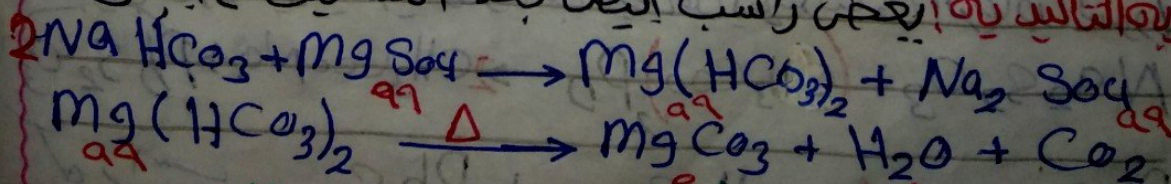 2NaHCO3 + MgSO4 aq → Mg(HCO3)2 aq + Na2SO4 aq
Mg(HCO3)2 aq Δ→ MgCO3 + H2O + CO2